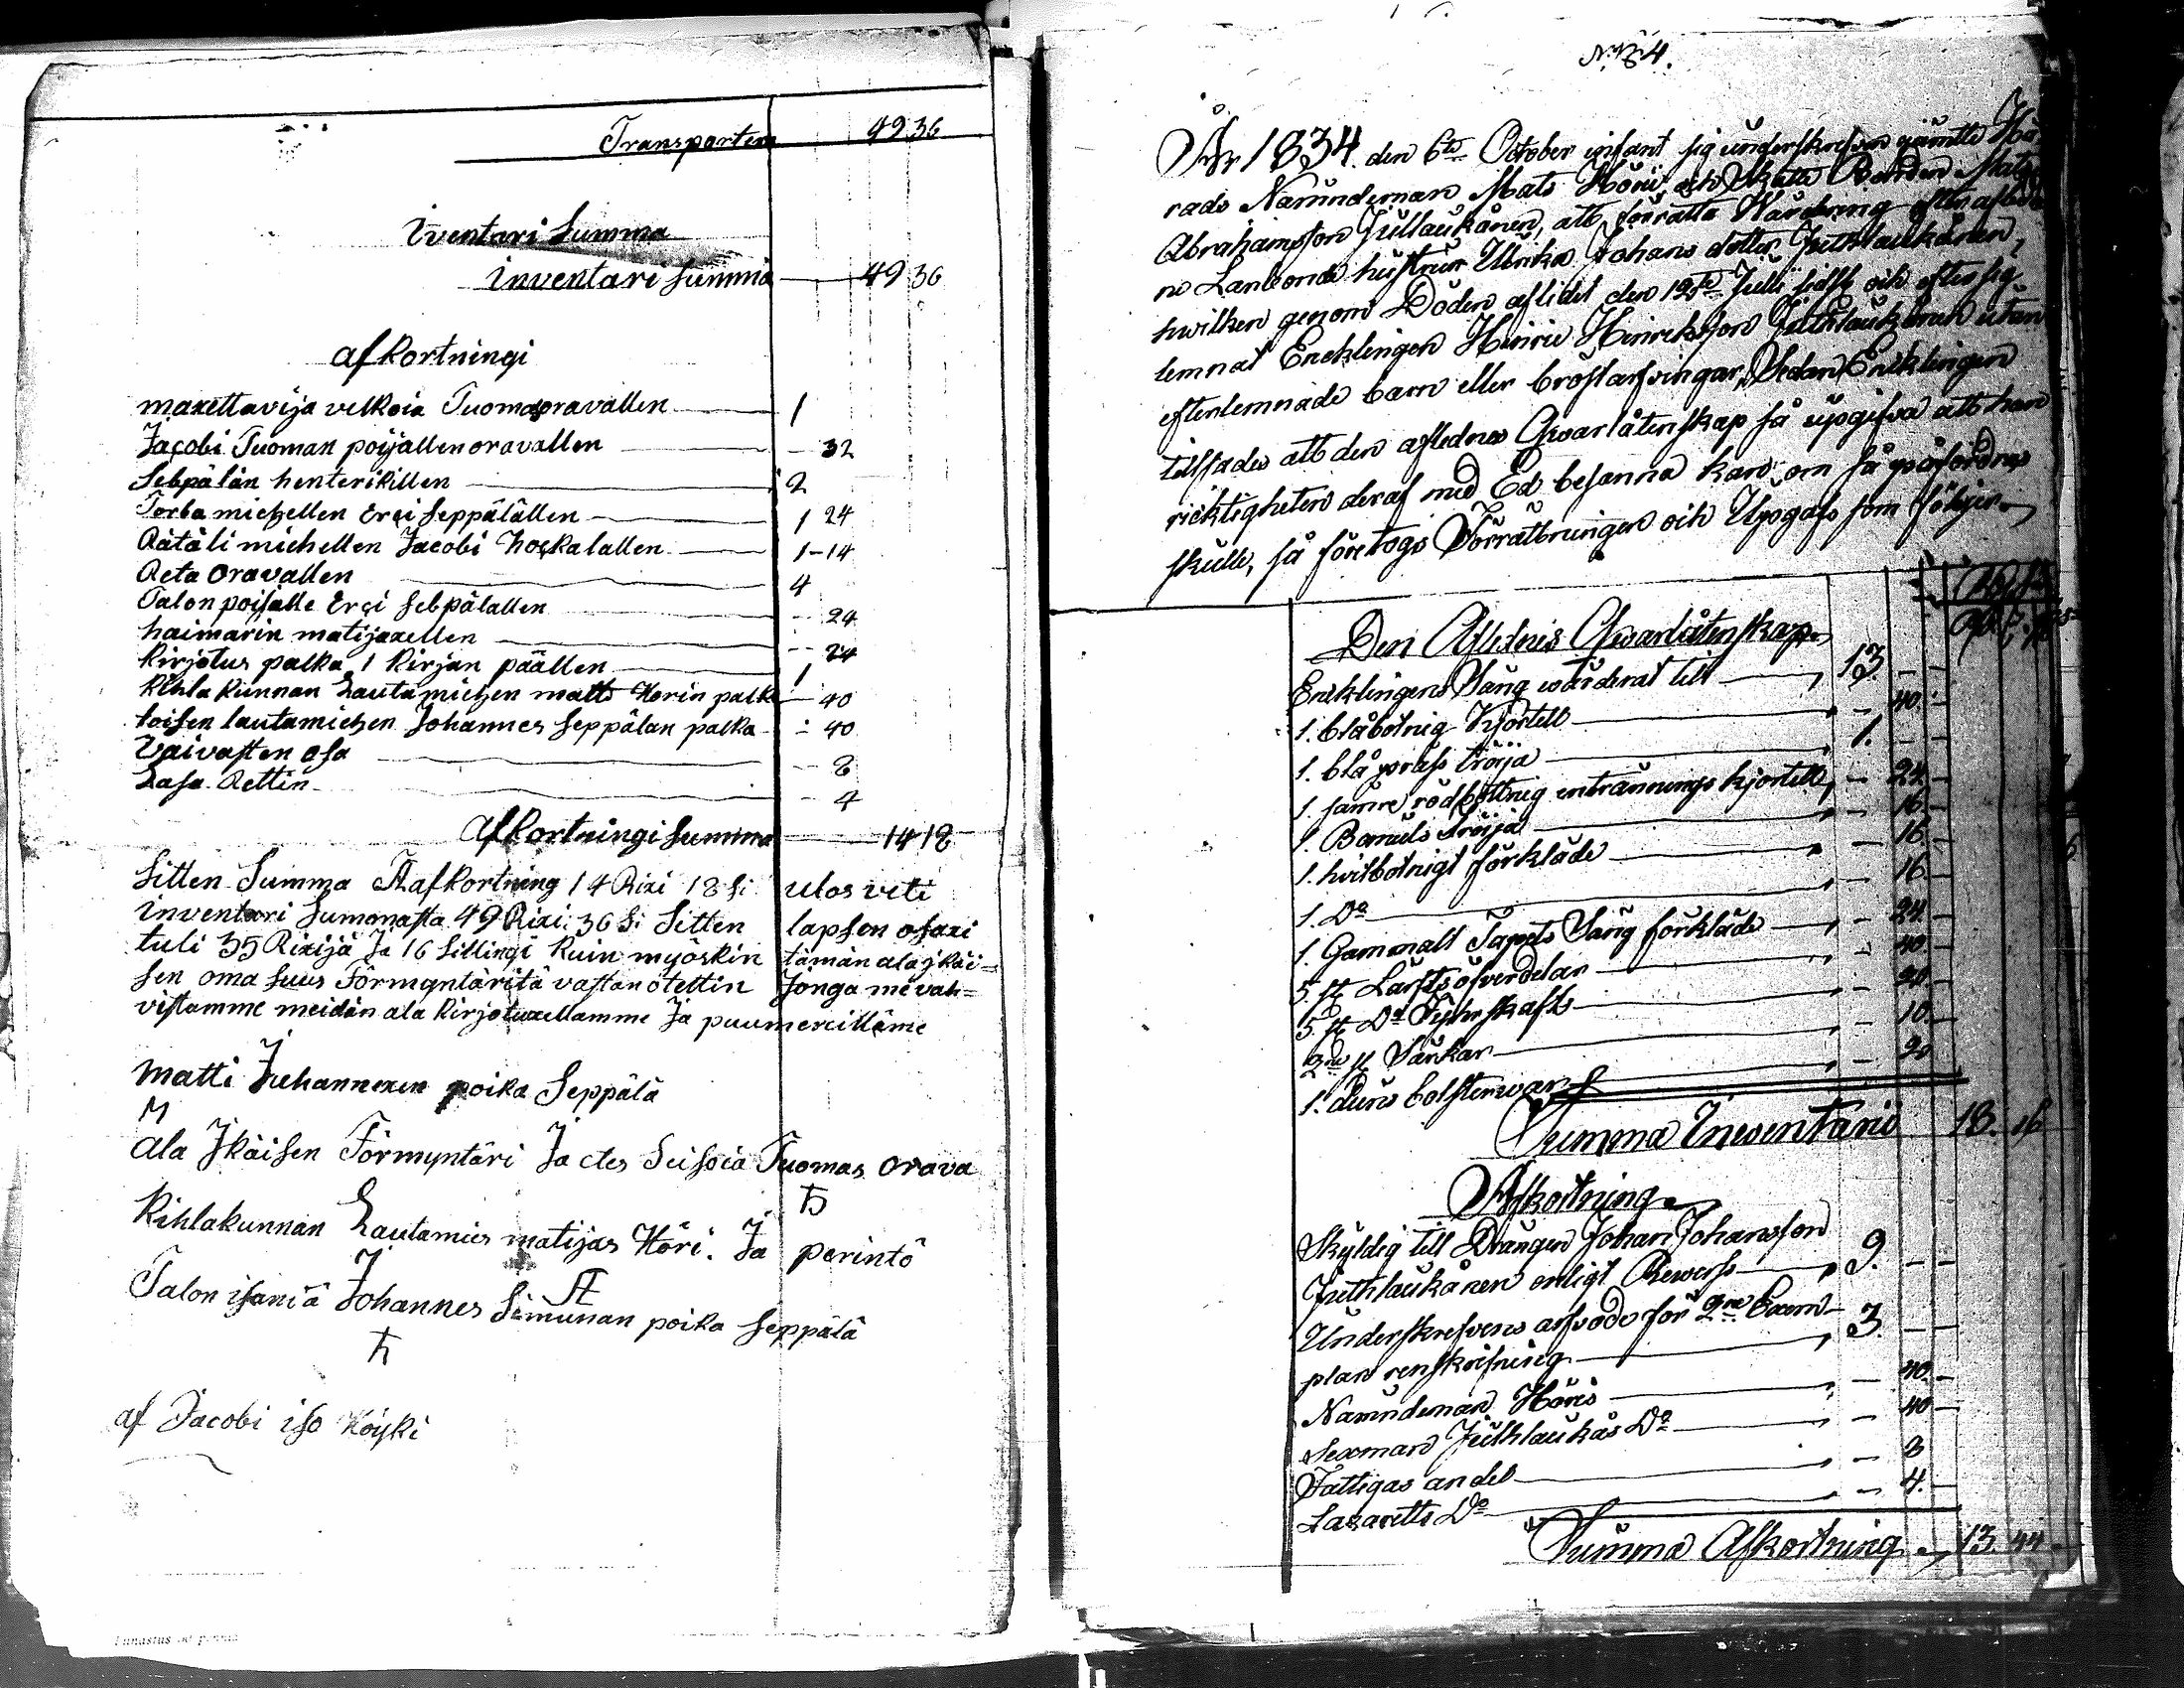 Transporten 49 36
iventari Summa
inventari Summa 49 36
afkortningi
maxettavija velkoia Tuomasoravallen 1
Jacobi Tuoman poijallen oravallen 32
Sebpälän henterikillen 2
Torba miehellen Erçi Seppälällen 1 24
Rätäli miehellen Jacobi hoskalallen 1-14
Reta Oravallen 4
Talon poijalle Erçi Sebpälallen 24
haimarin matijaxellen 24
Kirjotus palka 1 Kirjan päällen 1
Kihla Kunnan Lautamiehen matts Horin palka 40
toisen lautamiehen Johannes Seppälan palka 40
Vaivasten osa 8
Lasa Rettin 4
afkortningi Summa 14 18
Sitten Summa Aafkortning 14 Rixi 18 Si ulos veti
inventaari Summasta 49 Rixi 36 Si Sitten lapsen osaxi
tuli 35 Rixijä Ja 16 Sillingi Kuin myöskin tämän ala jkäi=
sen oma Suus Förmyntäritä vastan otettin Jonga me vah=
vistamme meidän ala Kirjotuxellamme Ja puumerkilläme
Matti Juhannexen poika Seppälä
M
Ala Jkäisen Förmyntäri Ja etes Seisoia Tuomas Orava
Kihlakunnan Lautamies matijas Höri. Ja perintö
Talon isäntä Johannes Simunan poika Seppälä
af Jacobi iso Köyki
N:o 24.
År 1834. den 6te October infant sig underskrefven jämte Hä-
rads Nämndeman Mats Höri, och Skatte Bonden Mats
Abrahamsson Jullaukånen, att förrätta Wärdering efter aflid
ne Lanbonde hustrun Ulrika Johans dotter Juthlaukånen,
hwilken genom Döden aflidit den 12te Julii sidste och efter sig
lemnat Encklingen Hinric Hinricksson Juthlaukånen utan
efterlemnade barn eller bröstarfvingar, Sedan Encklingen
tillsades att den aflednes Qwarlåtenskap så upgifva att han
ricktigheten deraf med Ed besanna kan om så påfordras
skulle, så företogs Förrättningen och Upgafs som följer
Den Aflednes Qwarlåtenskap
Encklingens Säng wärderat till 13. —
1. blåbotnig Kjortell — 40.
1. blå präss tröija 1. —
1. sämre rödbottnig intrännings kjortell — 24.
1. Bomuls tröija — 16.
1. hvitbotnigt förkläde — 16.
1. Do — 16.
1. Gammalt Tapets Säng förkläde — 24.
5 st Lärfts öfverdelar — 40.
5 st Do Tyhrskaft — 20.
2ne st Särkar — 10.
1. duns bolsterwar — 20
Summa Inventarii 18. 16
Afkortning
Skyldig till Drängen Johan Johansson
Juthlaukånen enligt Rewerss 9. —
Underskrefvens arfvode för 2ne Exem-
plar renskrifning 3. —
Nämndeman Höris — 40.
Sexman Juthlaukås Do — 40
Fattigas andel — 8
Lazaretts Do — 4.
Summa Afkortning 13 44